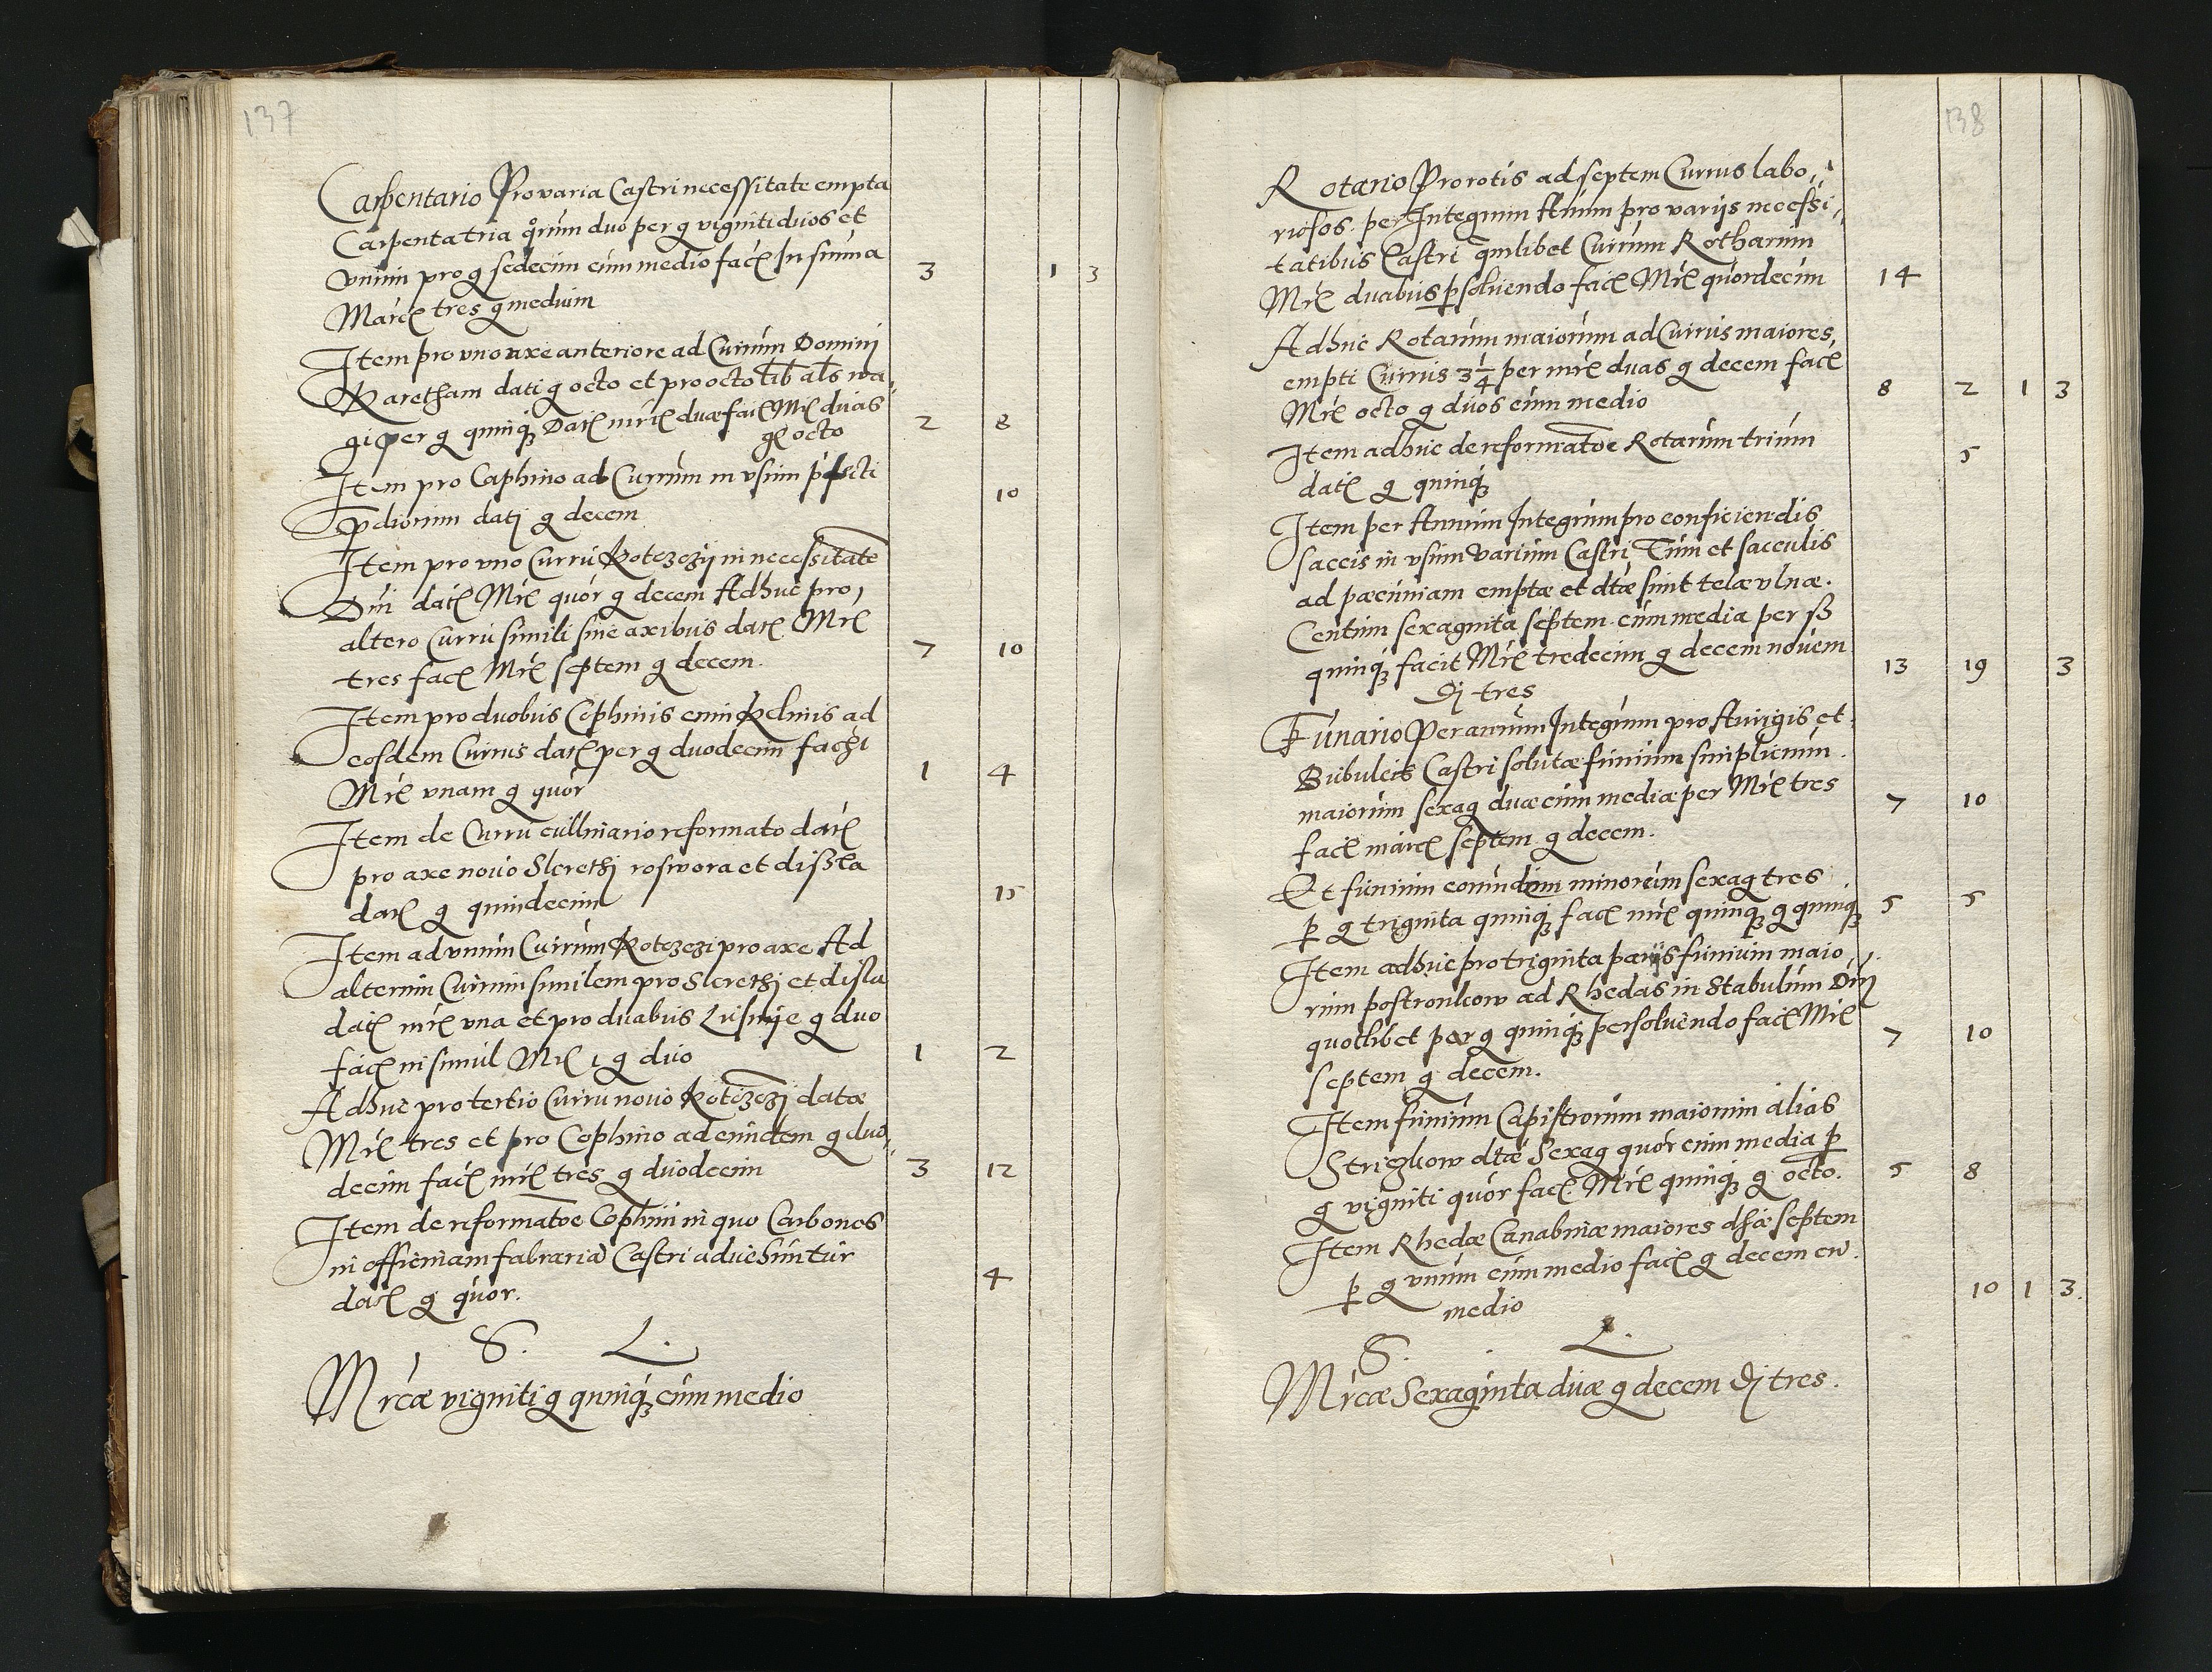 137
Carpentario Pro varia Castri necessitate empta
Carpenta tria qrum duo per g viginti duos et
vnum pro g sedecim cum medio fac In summa 3 1 3
Marc tres g medium
Item pro vno axe anteriore ad Currum Domini
Karetham dati g octo et pro octo lib als wa,
gi per g quinq Dat mrc duae fac Mrc duas 2 8
g octo
Item pro Cophino ad Currum in vsum pfecti 10
pdiorum dati g decem
Item pro vno Curru Kotczczij in necessitate
Dni dat Mrc quor g decem Adhuc pro,
altero Curru simili sine axibus dat Mrc
tres fac Mrc septem g decem. 7 10
Item pro duobus Cophinis cum Kelnis ad
eosdem Currus dat per g duodecim
Mrc vnam g quor 1 4
Item de Curru cullinario reformato dat
pro axe nouo Slcrethi roswora et dissla
dat g quindecim 15
Item ad vnum Currum Kotczczi pro axe Ad
alterum Currum similem pro Slcrethj et disla
dat mrc vna et pro duabus Lusnye g duo
fac in simul Mrc 1 g duo 1 2
Adhuc pro tertio Curru nouo Kotczczj datae
Mrc tres et pro Cophino ad eundem g duo,
decim fac mrc tres g duodecim 3 12
Item de reformatoe Cophini in quo Carbones
in officinam fabraria Castri aduehuntur
dat g quor. 4
S. L.
Mrcae viginti g quinq cum medio
138
Rotario Pro rotis ad septem Currus labo,
riosos per Integrum Annum pro varijs necessi,
tatibus Castri qmlibet Currum Rotharum
Mrc duabus psoluendo fac Mrc quordecim 14
Adhuc Rotarum maiorum ad Currus maiores,
empti Currus 3 1/4 per mrc duas g decem fac
Mrc octo g duos cum medio 8 2 1 3
Item adhuc de reformatoe Rotarum trium
dat g quinq 5
Item per Annum Integrum pro conficiendis
saccis in vsum varium Castri Tum et sacculis
ad paecuniam emptae et dtae sunt telae vlnae.
Centum sexaginta septem cum media per ß
quinq facit Mrc tredecim g decem nouem 13 19 3
D tres
Funario Per annum Integrum pro Aurigis et
Bubulcis Castri solutae funium simplicium.
maiorum sexag duae cum media per Mrc tres 7 10
fac marc septem g decem.
Et funium eorundem minorum sexag tres
p g triginta quinq fac mrc quinq g quinq 5 5
Item adhuc pro triginta parijs funium maio,
rum postronkow ad Rhedas in Stabulum Dni
quotlibet per g quinq persoluendo fac Mrc 7 10
septem g decem.
Item funium Capistrorum maiorum alias
Striczkow dtae Sexag quor cum media p
g viginti quor fac Mrc quinq g octo. 5 8
Item Rhedae Canabinae maiores dtae septem
p g vnum cum medio fac g decem cu. 10 1 3.
medio
S. L.
Mrcae Sexaginta duae g decem D tres.